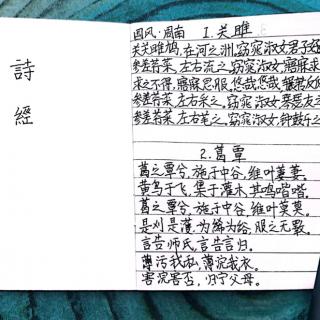 詩
經
国风·周南 1.关雎
关关雎鸠,在河之洲,窈窕淑女,君子好
参差荇菜,左右流之,窈窕淑女,寤寐求
求之不得,寤寐思服,悠哉悠哉,辗转反
参差荇菜,左右采之,窈窕淑女,琴瑟友之
参差荇菜,左右芼之,窈窕淑女,钟鼓乐之
2.葛覃
葛之覃兮,施于中谷,维叶萋萋。
黄鸟于飞,集于灌木,其鸣喈喈。
葛之覃兮,施于中谷,维叶莫莫。
是刈是濩,为絺为绤,服之无斁。
言告师氏,言告言归。
薄污我私,薄浣我衣。
害浣害否,归宁父母。